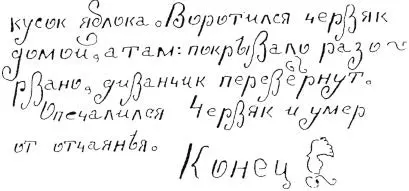 кусок яблока. Воротился червяк
домой, а там: покрывало разо-
рвано, диванчик перевёрнут.
Опечалился Червяк и умер
от отчаянья.
Конец